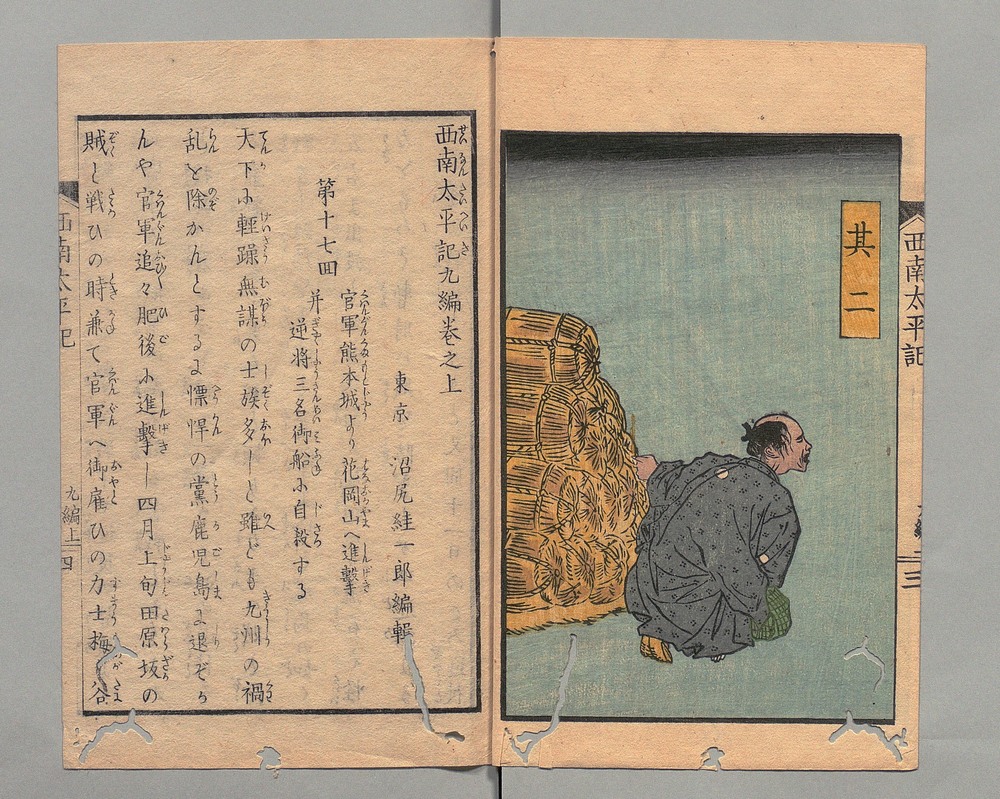 其二
西南太平記
三
西南太平記九編巻之上
東京 沼尻絓一郎編輯
第十七回
官軍熊本城より花岡山へ進撃
并逆将三名御船に自殺する
天下に輕躁無謀の士族多しと雖ども九州の禍
乱と除かんとするよ慓悍の黨鹿児島よ退ぞか
んや官軍追々肥後に進撃し四月上旬田原坂の
賊と戦ひの時兼て官軍へ御雇ひの力士梅ヶ谷
西南太平記
九編上
四